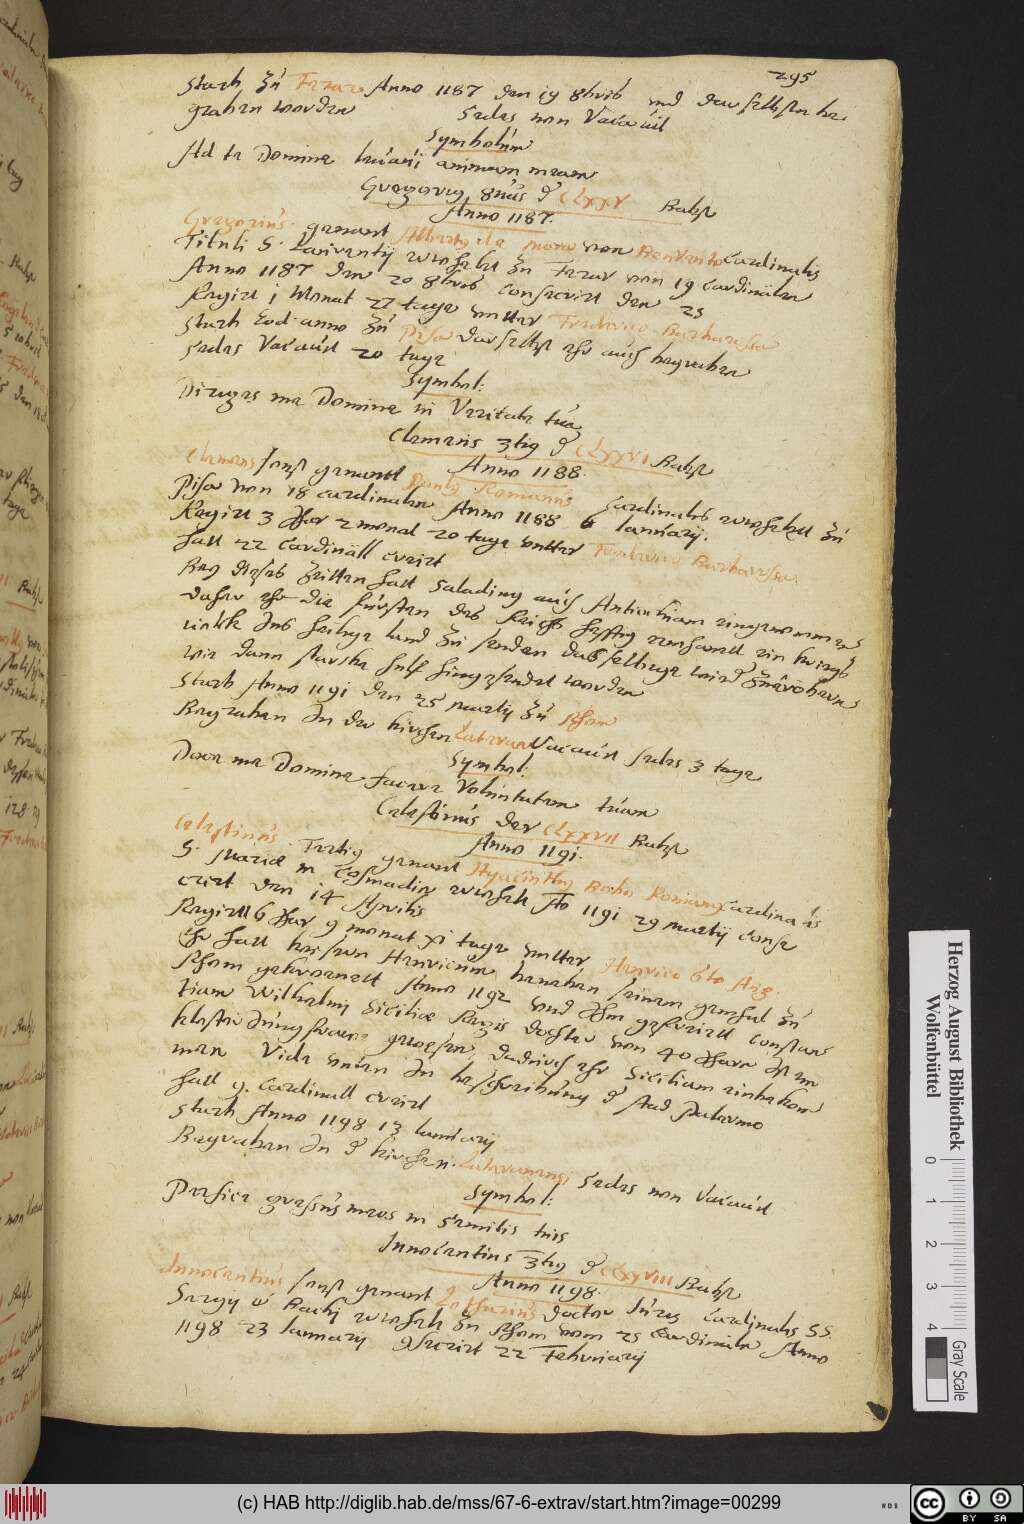 295
Starb Zu Ferrar Anno 1187 den 19 8bris und daselbsten be
graben worden Sedes non Vacauit
Symbolum
Ad te Domine levavi animam meam
Gregorius 8uus d CLXXV Babst
Anno 1187.
Gregorius genant Albertus de mora von Benevento Cardinalis
Tituli S. Laurentij erwehlet Zu Ferrar von 19 Cardinälen
Anno 1187 den 20 8bris Consecrirt den 25
Regirt j Monat 27 tage unter Frederico Barbarossa
Starb eod. anno Zu Pisa daselbst ehr auch begraben
Sedes Vacauit 20 tage
Symbol:
Diriges me Domine in Veritate tua
Clemens 3tius d CLXXVI Babst
Anno 1188.
Clemens sonst genantt Paulus Romanus Cardinalis erwehlett Zu
Pisa von 18 Cardinalen Anno 1188 6 Januarij.
Regirt 3 Jhar 2 monat 20 tage unter Frederico Barbarossa
hatt 22 Cardinäll creirt
Bey diesen Zeitten hatt Saladinus auch Antiochiam eingenommen
daher ehr die fürsten des Reichs hefftig vermanett ein krigs
volck Ins heilige land Zu senden dasselbige wider Zuerobern
wie dann starcke hülf hingesendet worden
Starb Anno 1191 den 25 Martij Zu Rhom
Begraben In der kirchen Lateran Vacauit sedes 3 tage
Symbol:
Doce me Domine facere Voluntatem tuam
Celestinus der CLXXVII Babst
Anno 1191.
Celestinus Tertius genant Hyacinthus Bobo Romanus Cardinalis
S. Mariæ in Cosmadin erwehlt Ao 1191 29 Martij Conse
crirt den 14 Aprilis
Regirtt 6 Jhar 9 monat xi tage unter Henrico 6to Aug.
Ehr hatt keiseren Henricum beneben seinem gemhal Zu
Rhom gekroenett Anno 1192 und Ihm gefreiett Constan
tiam Wilhelmi Siciliæ Regis dochter von 40 Jharn Ist ein
kloster Jungfrawe gewesen, dadurch ehr Sicilien einbekom
men Vide unten In beschreibung d stad Palermo
hatt 9. Cardinall creirt
Starb Anno 1198 13 Januarij
Begraben In d kirchen Lateranensi Sedes non Vacauit
Symbol:
Perfice gressus meos in semitis tuis
Innocentius 3tius d CLXXVIII Babst
Anno 1198.
Innocentius sonst genant Lotharius doctor Iuris Cardinalis SS.
Sergij & Bachj erwehlt Zu Rhom vom 25 Cardinalen Anno
1198 23 Januarij Consecrirt 22 Februarij
Herzog August Bibliothek
Wolfenbüttel
0 1 2 3 4
Gray Scale
(c) HAB http://diglib.hab.de/mss/67-6-extrav/start.htm?image=00299
WDB
cc BY SA